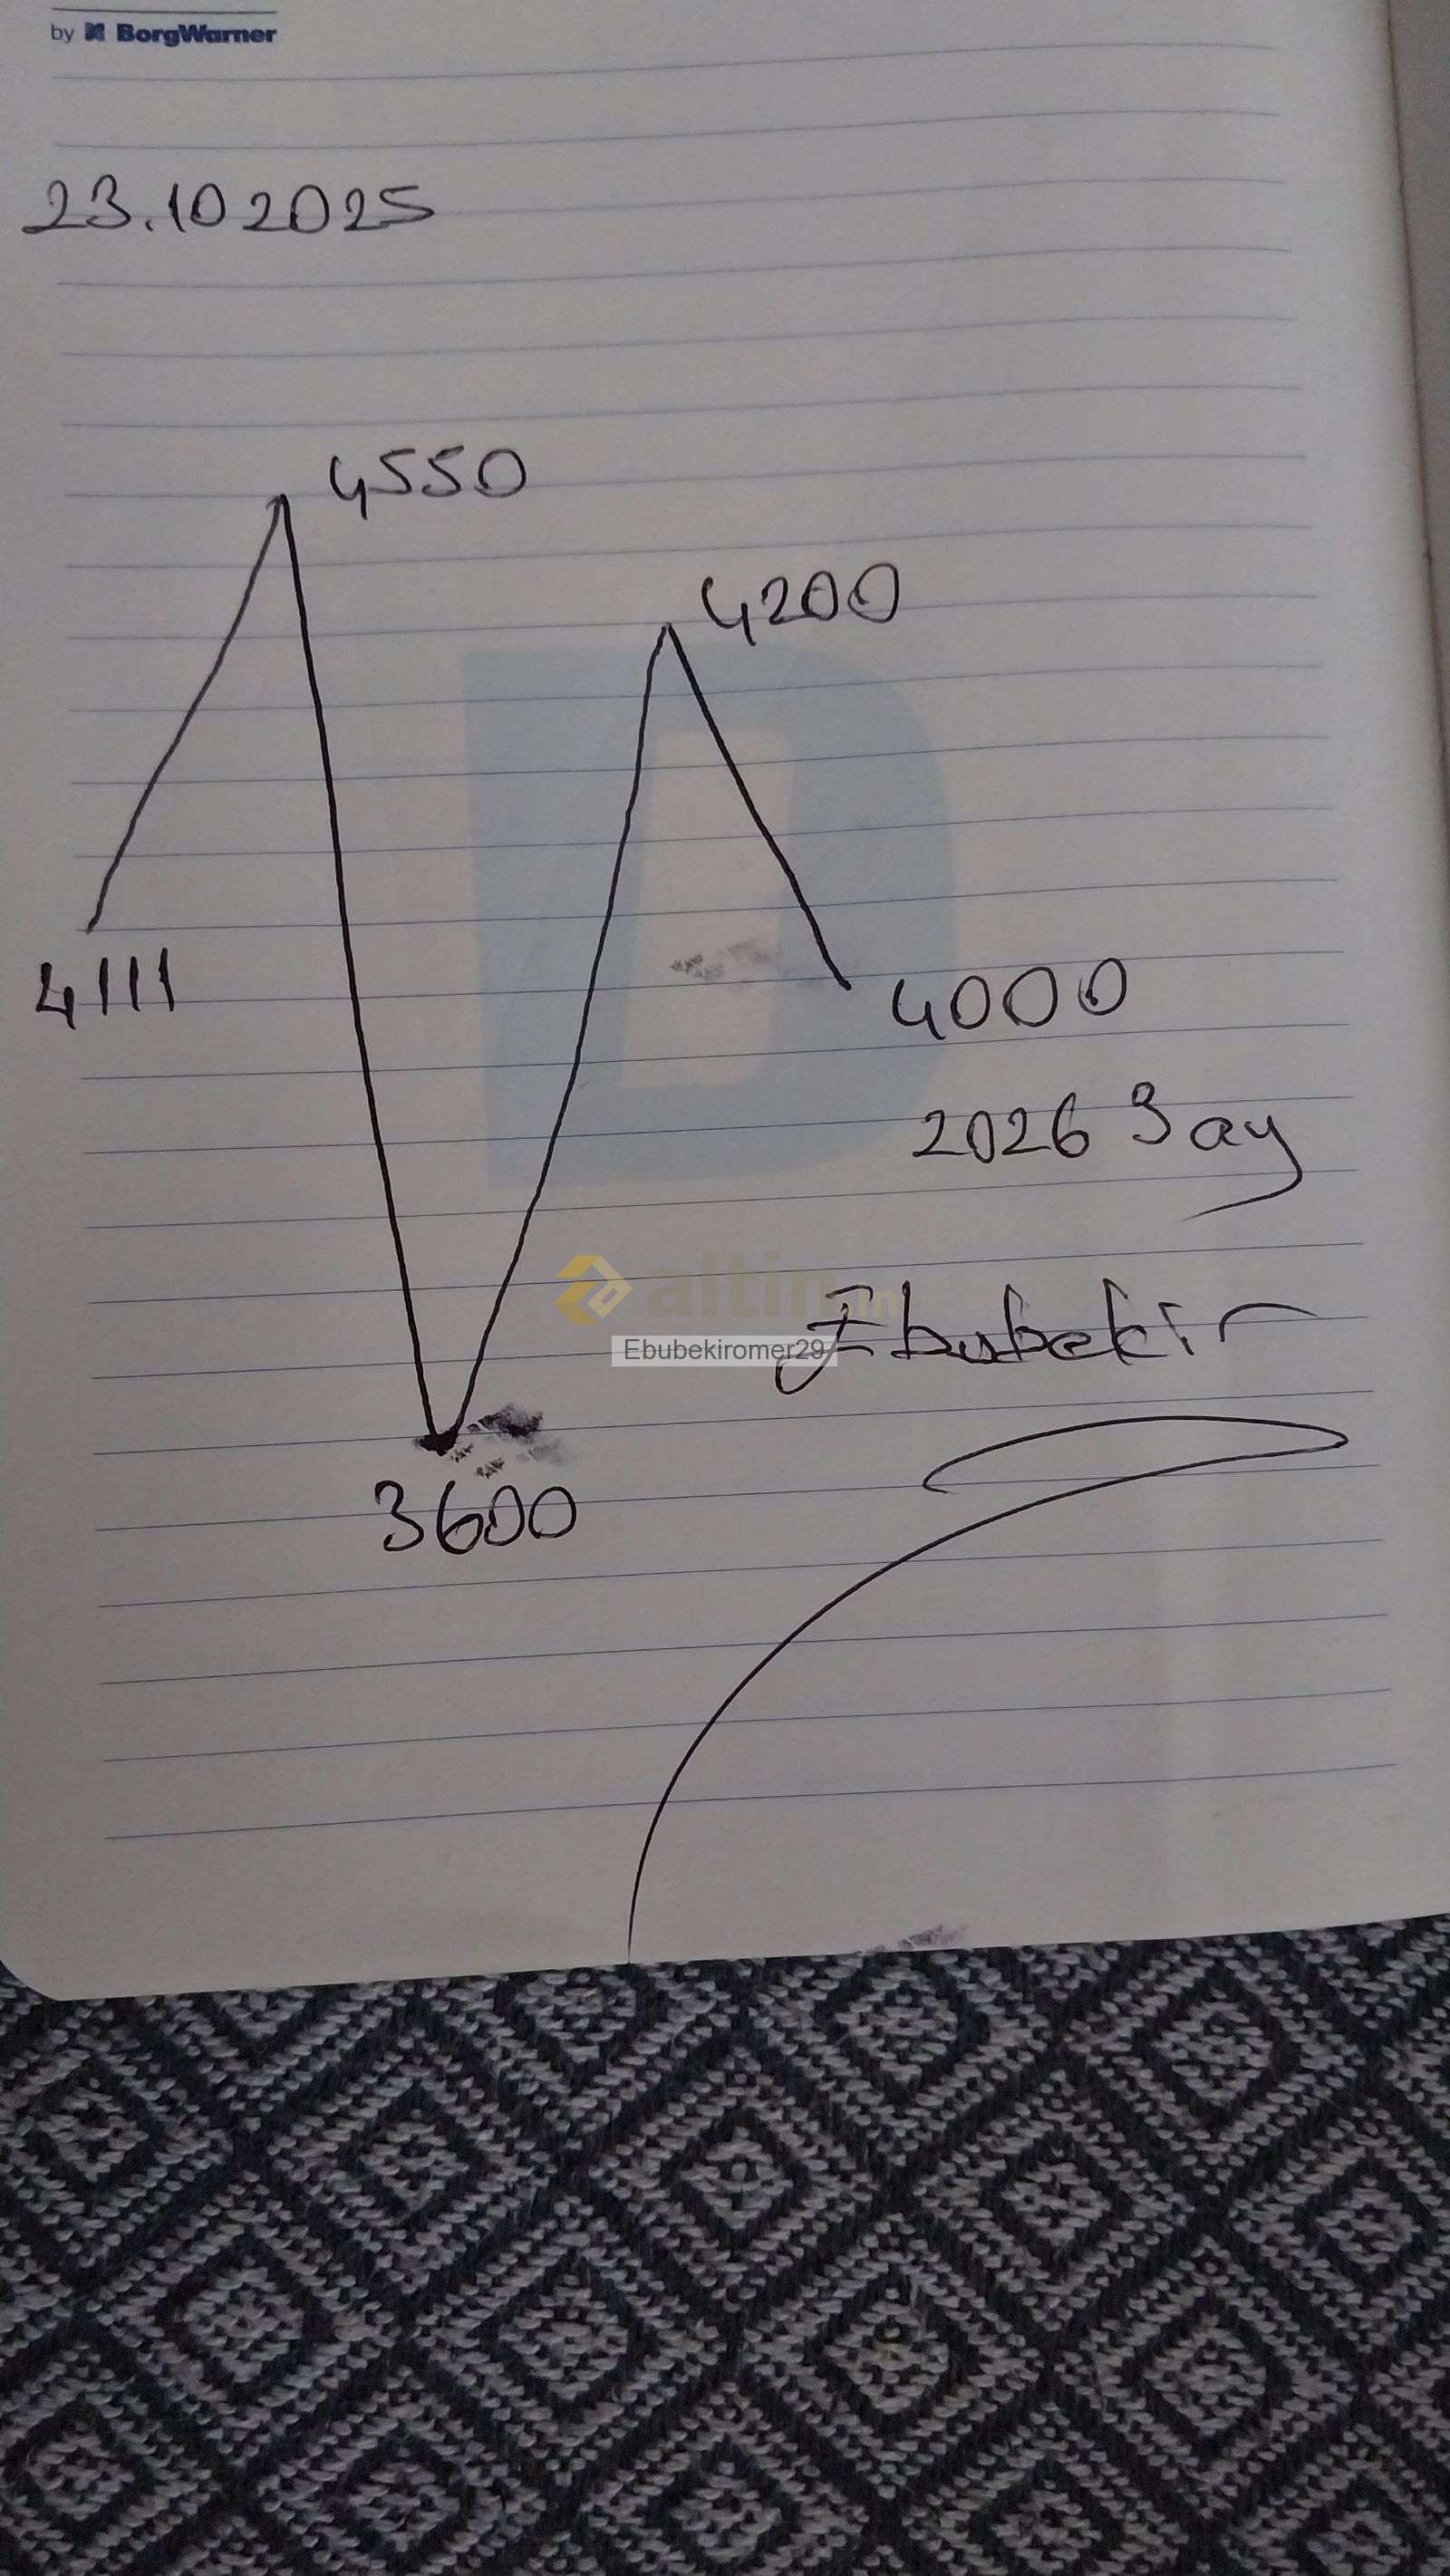 by BorgWarner
23.10 2025
4550
4200
4111
4000
2026 3 ay
altin.in
Ebubekir
Ebubekiromer29
3600